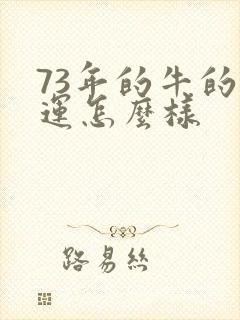 73年的牛的
運怎麼樣
路易絲